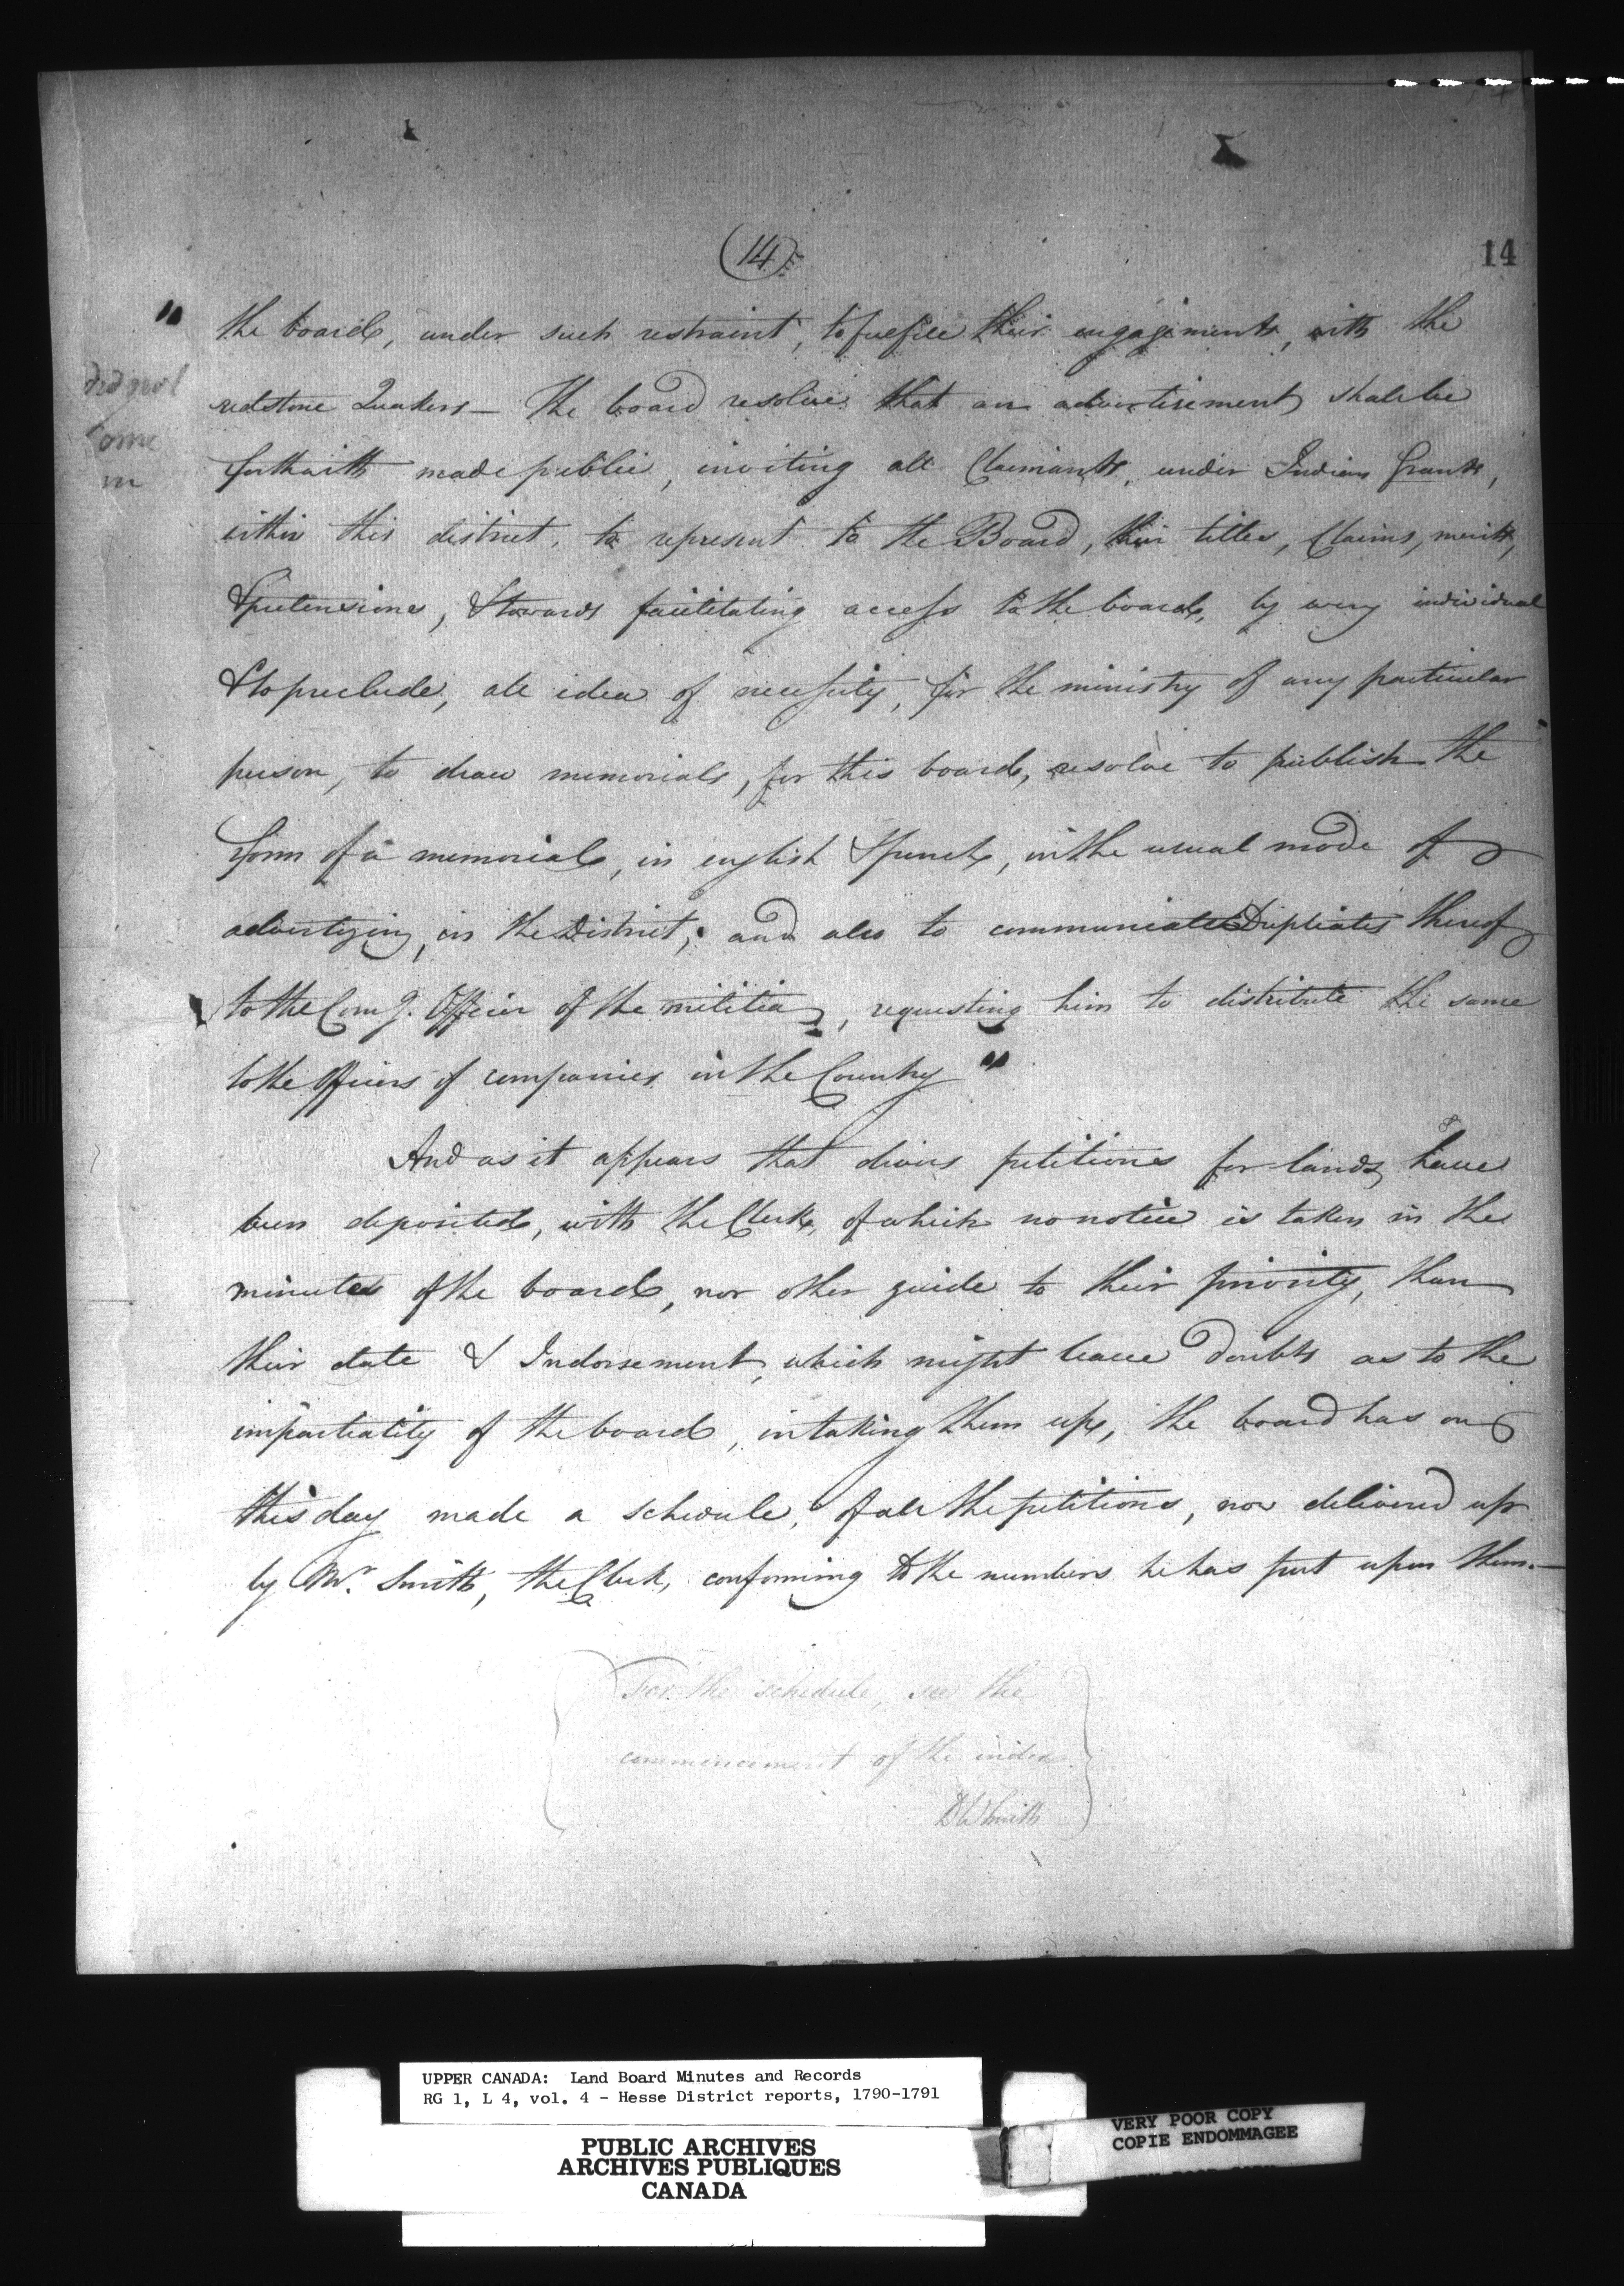 (14)
14
" the board, under such restraint, to fulfill their engagements, with the
redstone Quakers — The board resolve that an advertisement shall be
forthwith made public, inviting all Claimants, under Indian Grants,
within this district, to represent to the Board, their titles, Claims, merits,
& pretensions, & towards facilitating access to the board, by every individual
& to preclude, all idea of necessity, for the ministry of any particular
person, to draw memorials, for this board, resolve to publish the
form of a memorial, in english & french, in the usual mode of
advertizing, in the District; and also to communicate Duplicates thereof
to the Comg. Officer of the militia, requesting him to distribute the same
to the Officers of companies in the Country "
And as it appears that divers petitions for lands, have
been deposited, with the Clerk, of which no notice is taken in the
minutes of the board, nor other guide to their priority, than
their date & Indorsement, which might leave doubts as to the
impartiality of the board, in taking them up, the board has on
this day made a schedule, of all the petitions, now delivered up
by Mr. Smith, the Clerk, conforming to the numbers he has put upon them.—
For the schedule, see the
commencement of the index
DWSmith
did not
come
in
UPPER CANADA: Land Board Minutes and Records
RG 1, L 4, vol. 4 - Hesse District reports, 1790-1791
PUBLIC ARCHIVES
ARCHIVES PUBLIQUES
CANADA
VERY POOR COPY
COPIE ENDOMMAGEE